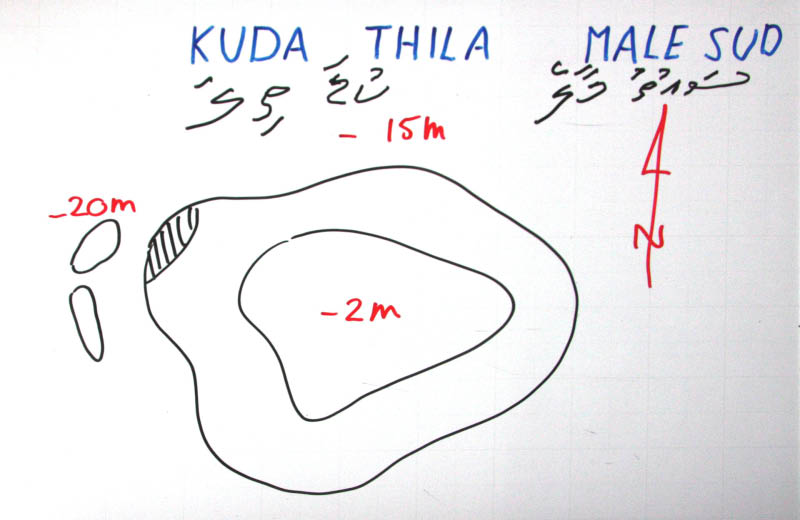 KUDA THILA MALE SUD
ކުޑަ ތިލަ ސައުތު މާލެ
- 15m
-20m
N
-2m